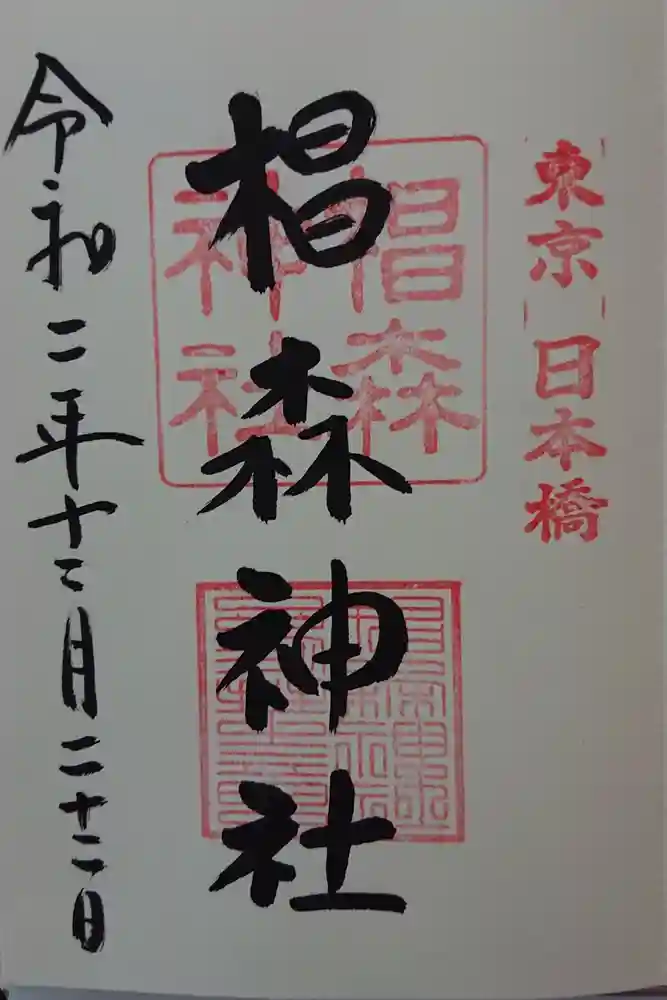 東京
日本橋
椙森神社
椙森
神社
令和二年十二月二十二日